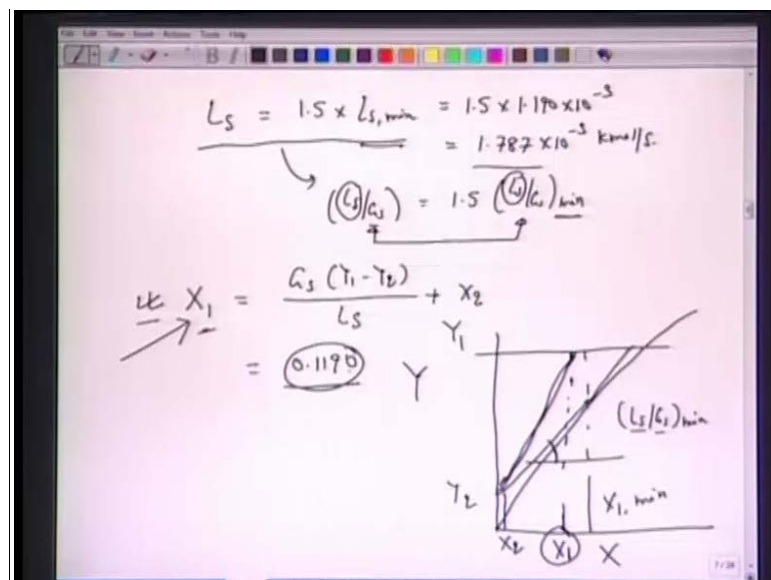 File Edit View Insert Actions Tools Help
B I
L_S = 1.5 × L_S,min = 1.5 × 1.190 × 10^-3
= 1.787 × 10^-3 kmol/s.
(L_S/G_S) = 1.5 (L_S/G_S)min
X_1 = G_S (Y_1 - Y_2) / L_S + X_2
= 0.1190
Y_1
Y
(L_S/G_S)min
Y_2
X_1, min
X_2 X_1 X
7/28